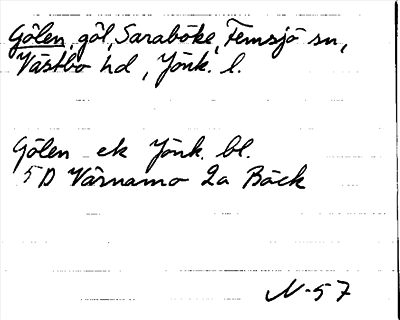 Gölen, göl, Saraböke, Femsjö sn,
Västbo hd, Jönk. l.
Gölen ek Jönk. bl.
5 D Värnamo 2a Bäck
N-57